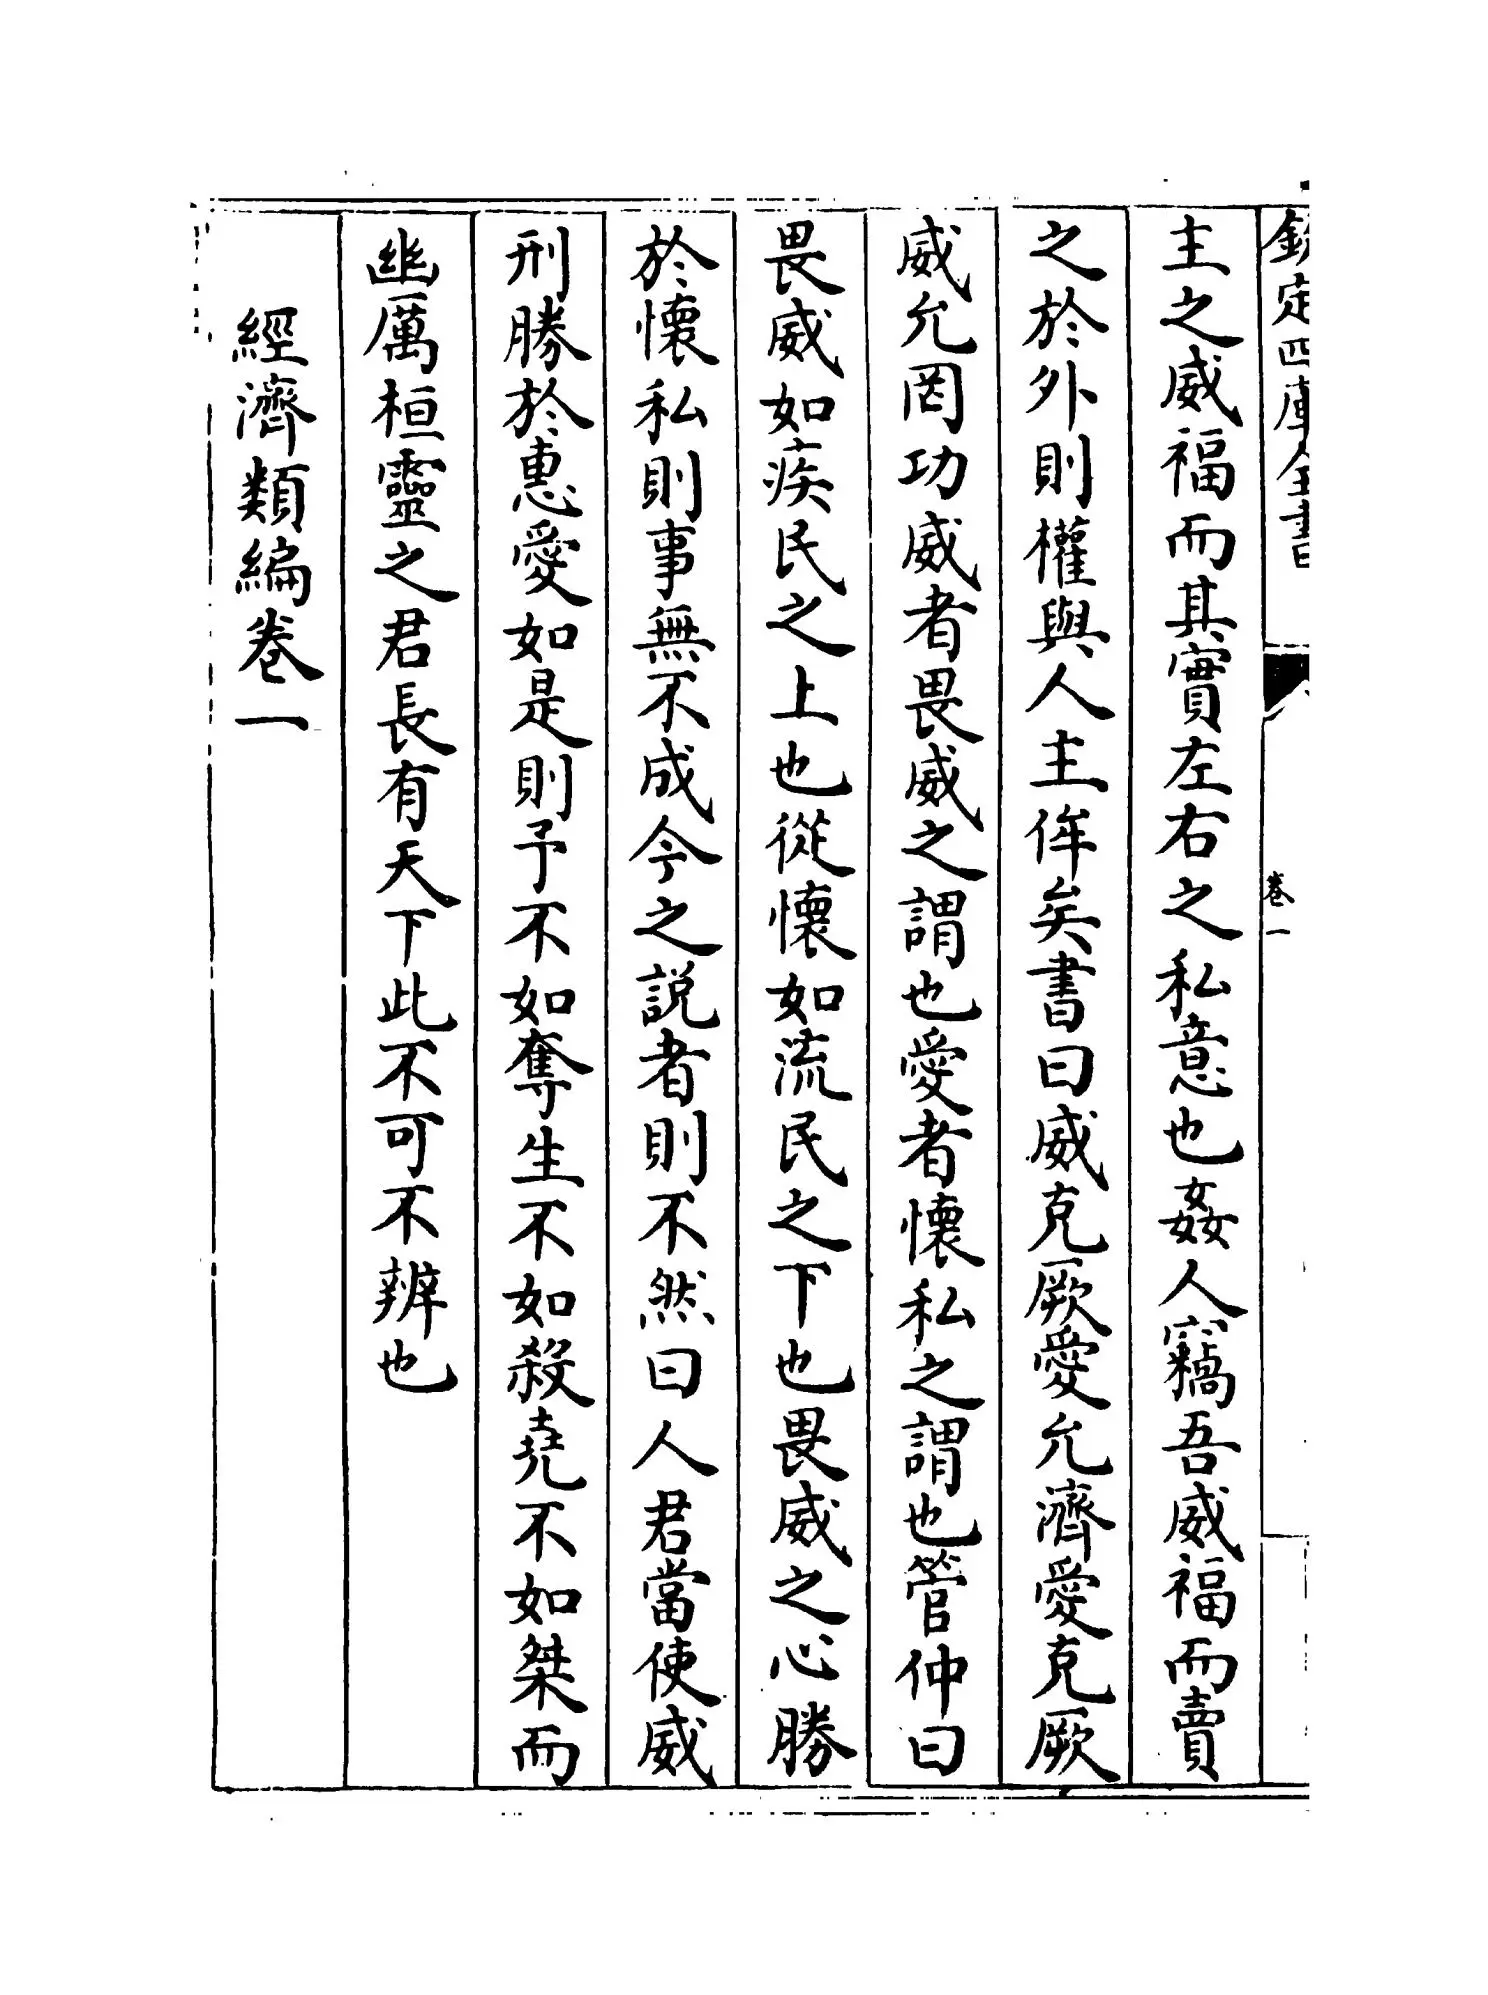 欽定四庫全書
卷一
主之威福而其實左右之私意也姦人竊吾威福而賣
之於外則權與人主侔矣書曰威克厥愛允濟愛克厥
威允罔功威者畏威之謂也愛者懷私之謂也管仲曰
畏威如疾民之上也從懷如流民之下也畏威之心勝
於懷私則事無不成今之説者則不然曰人君當使威
刑勝於惠愛如是則予不如奪生不如殺堯不如桀而
幽厲桓靈之君長有天下此不可不辨也
經濟類編卷一